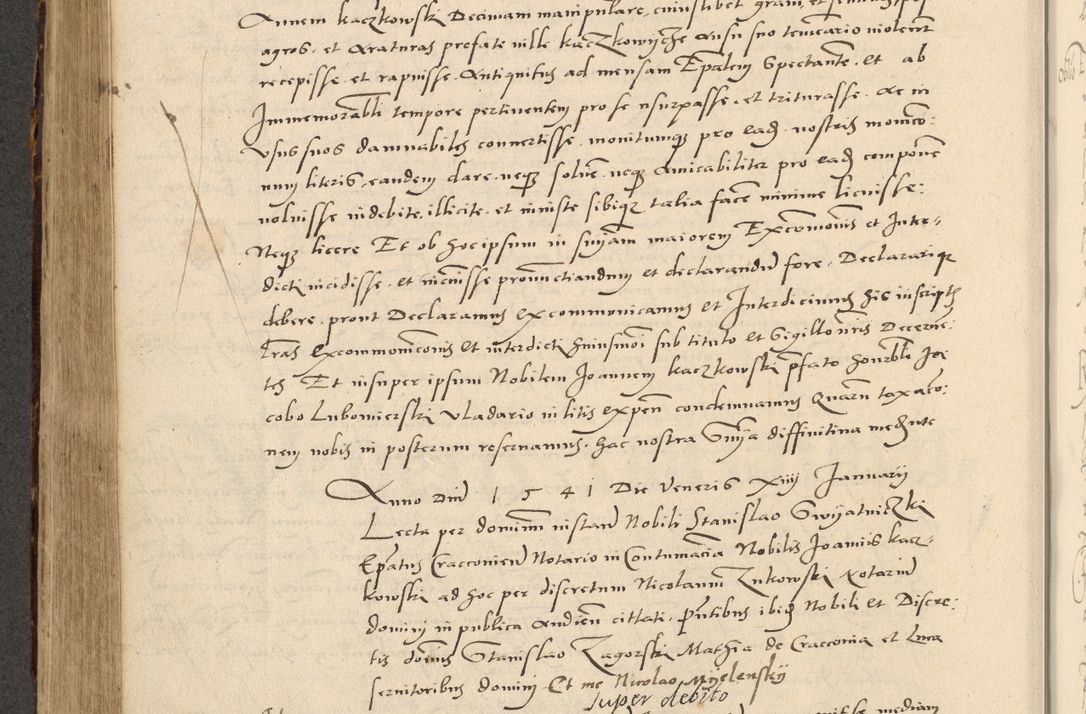 Annem Kaczkowski Decimam manipularem, cuiuslibet grani, et
agros. et Araturas prefate ville Kaczkowycze Ausu suo temerario violent
recepisse. et rapuisse. Antiquitus ad mensam Epalem Spectante. et ab
Immemorabli tempore pertinentem pro se usurpasse. et triturasse. Ac in
Usus suos damnabiles convertisse. monitumq pro ead. nostris monico:
num literis. eandem dare. neq solve. neq Amicabiliter pro ead componere
voluisse indebite. illicite. et iniuste sibiq talia face minime licuisse:
Neq licere Et ob hoc ipsum in sniam maiorem Excomonis et Inter-
dicti incidisse. et incurrisse pronunctiandum et declarandum fore. Declarariq
debere. prout Declaramus excommunicamus et Interdicimus his in scriptis
Lras excommonicōnis et interdicti huiusmōi sub titulo et Sigillo nris Decerne:
tes Et insuper ipsum Nobilem Joannem Kaczkowski pfato honrbli Ja
cobo Lubomierski Vladario in litis expen condemnamus Quarn taxaco:
nem nobis in posterum reservamus. hac nostra Snia diffinitiva mediante
Anno Dni 1541 Die Veneris XIIII Januarij
Lecta per dominum instan Nobili Stanislao Swyatniczki
Epatus Cracconien Notario in Contumacia Nobilis Joannis Kacz-
kowski ad hoc per discretum Nicolaum Zukowski Notarium
domini in publica Audien cittati. Pntibus ibid Nobili et Discre:
tis domis Stanislao Zagorski Mathia de Cracconia et Luca
servitoribus domini Et me Nicolao Myelensky
super debito